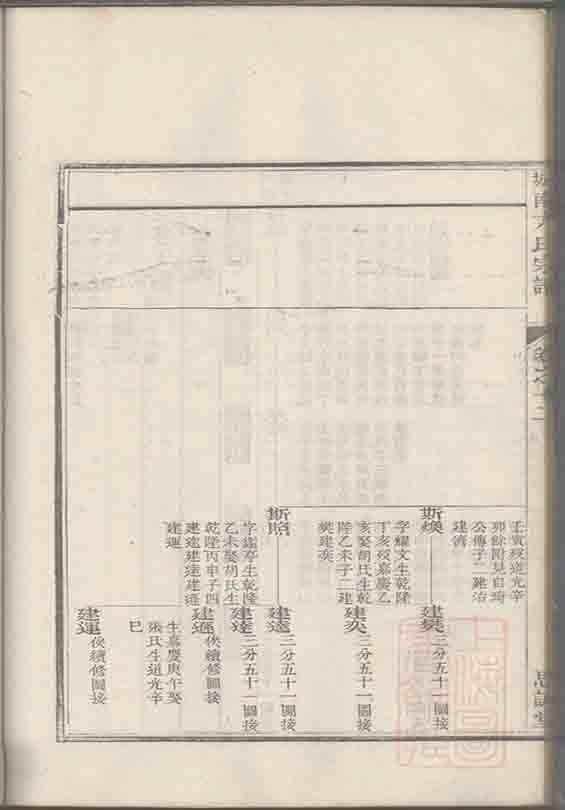 方氏宗譜
卷之十二
壬寅歿道光辛
卯餘附見自琦
公傳子二建治
建濟
斯煥
字耀文生乾隆
丁亥歿嘉慶乙
亥娶胡氏生乾
隆乙未子二建
樊建奕
建樊
三分五十一圖接
建奕
三分五十一圖接
斯照
字鑑亭生乾隆
乙未娶胡氏生
乾隆丙申子四
建逵建達建遜
建運
建逵
三分五十一圖接
建達
三分五十一圖接
俟續修圖接
生嘉慶庚午娶
張氏生道光辛
巳
建運
俟續修圖接